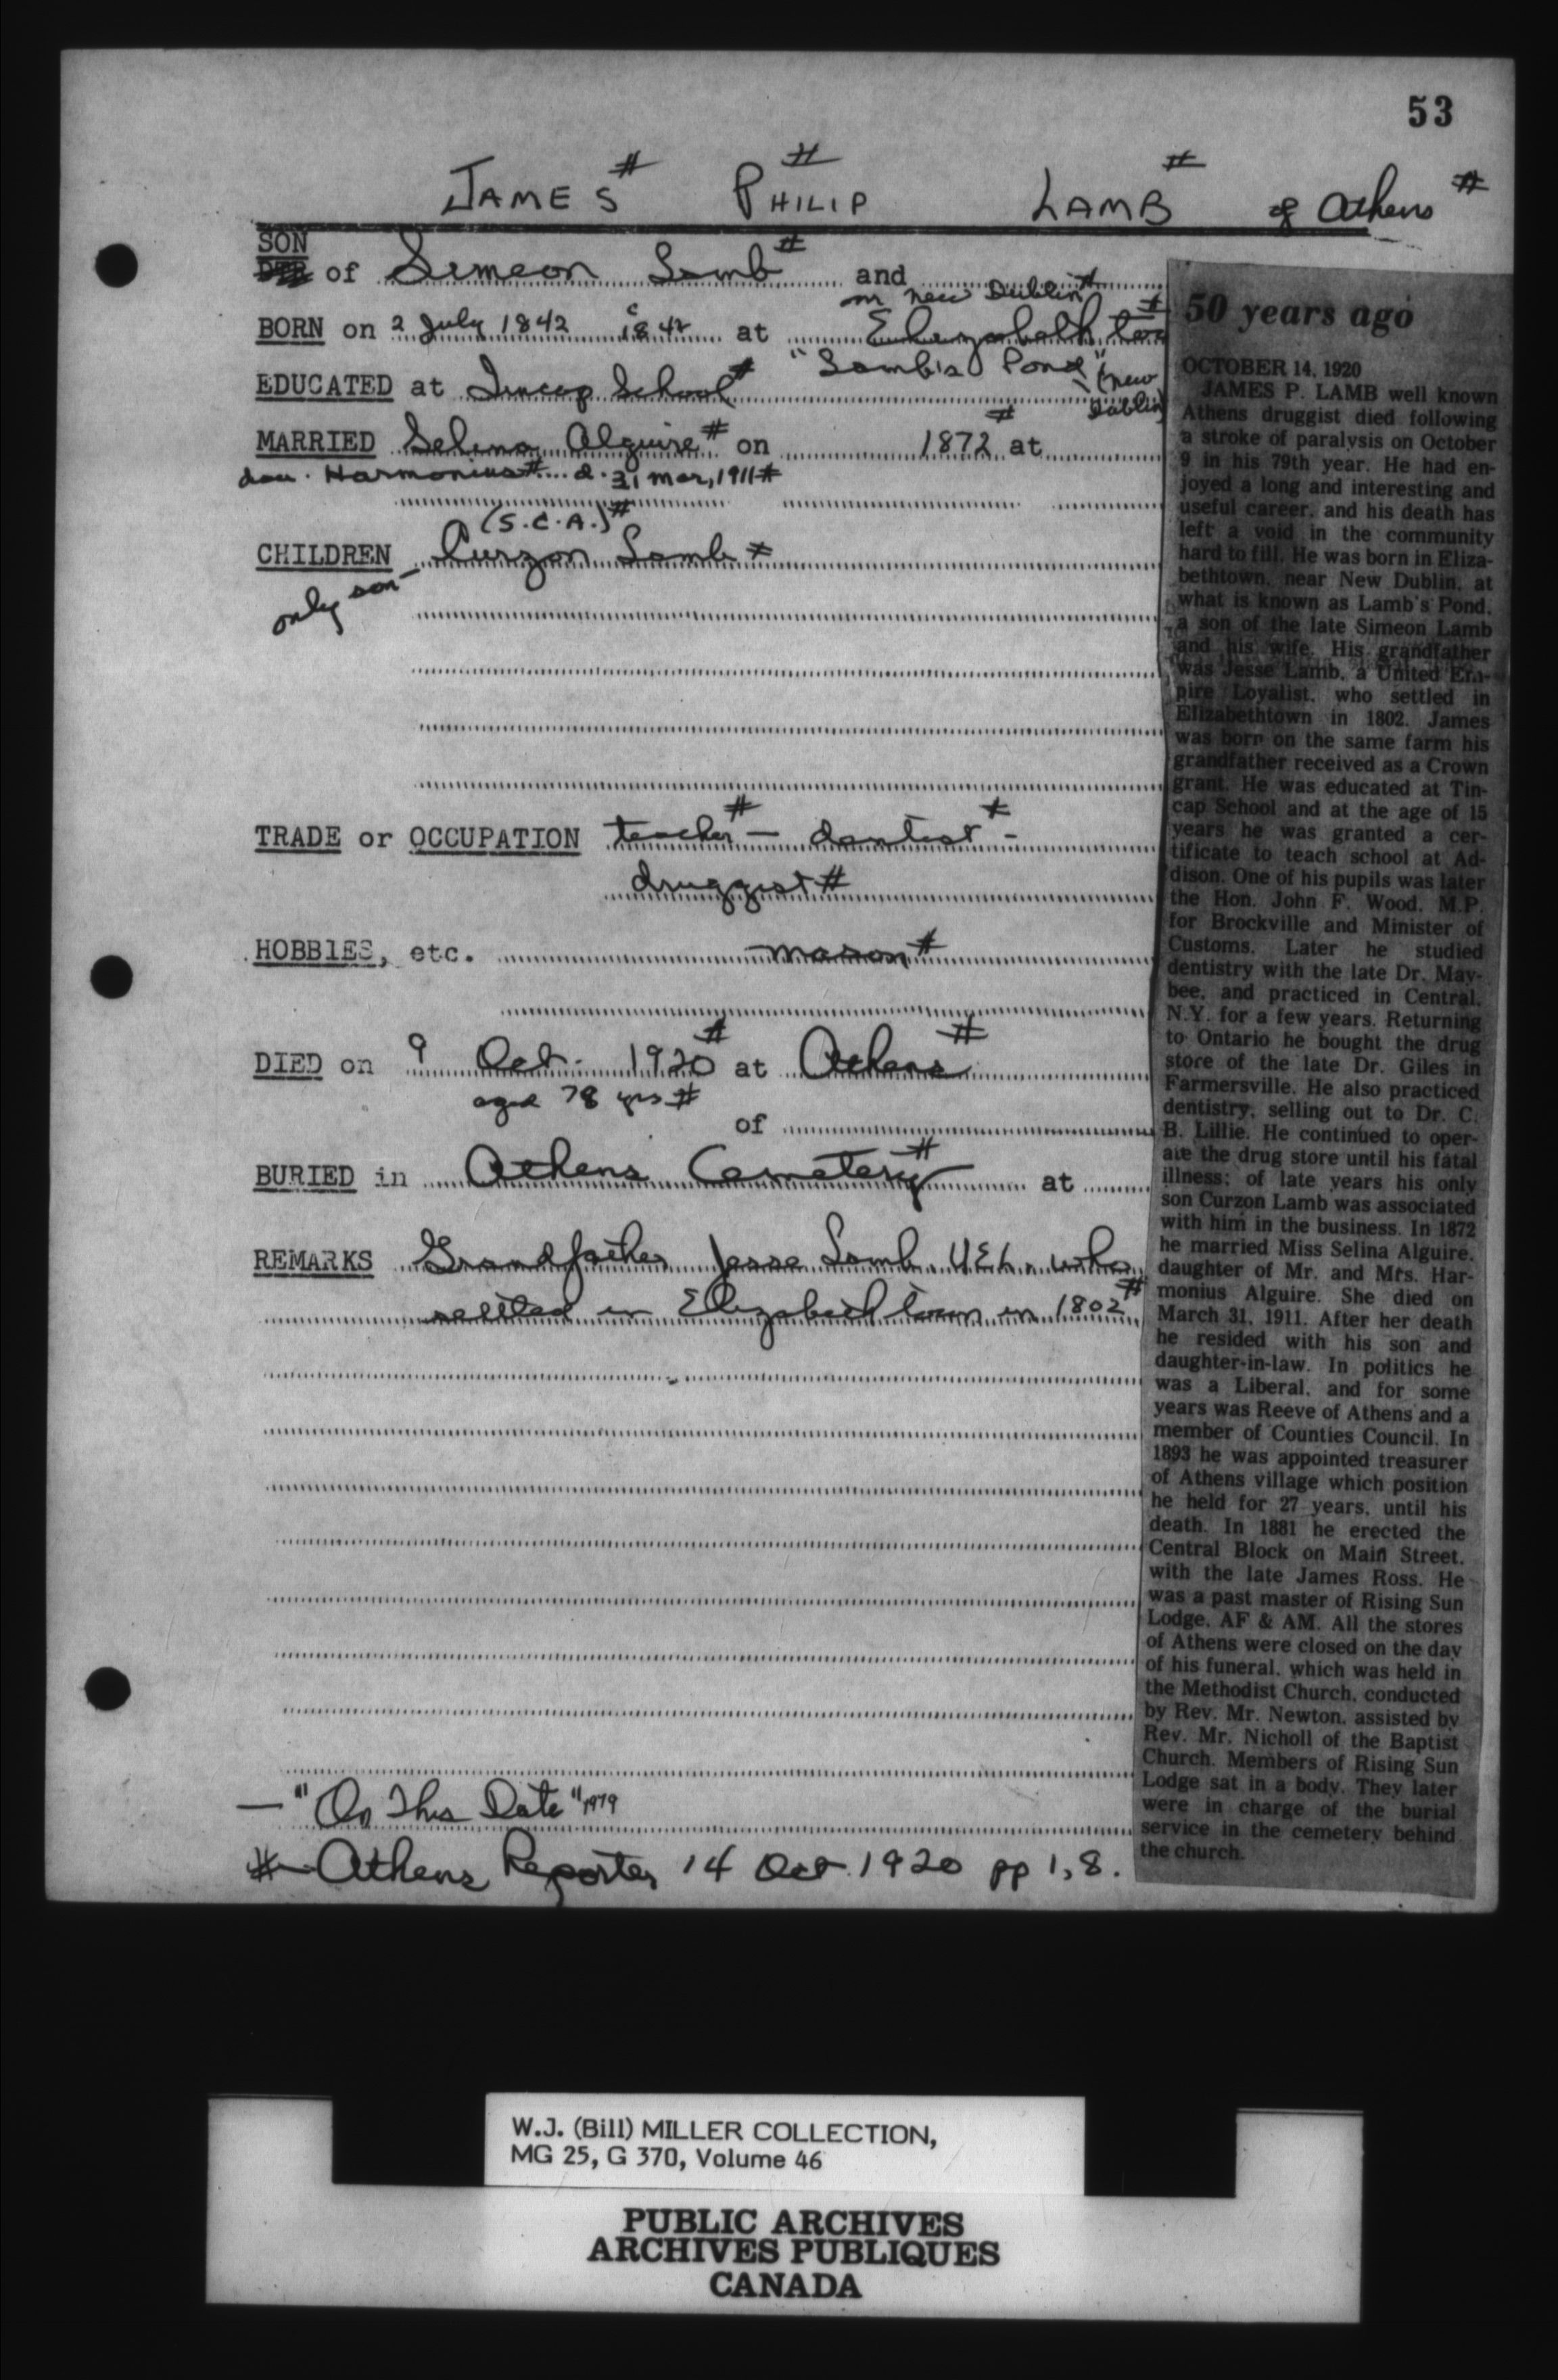 53
JAMES# PHILIP# LAMB# of Athens#
SON
DTR of Simeon Lamb# and
nr new Dublin#
BORN on 2 July 1842 c1842 at Elizabethtown#
"Lamb's Pond" (new Dublin)
EDUCATED at Tincap School#
MARRIED Selina Alguire# on 1872# at
dau. Harmonius# d. 31 Mar, 1911#
(S.C.A.)#
CHILDREN Curzon Lamb#
only son-
TRADE or OCCUPATION teacher# - dentist# -
druggist#
HOBBIES, etc. mason#
DIED on 9 Oct. 1920# at Athens#
aged 78 yrs#
of
BURIED in Athens Cemetery# at
REMARKS Grandfather Jesse Lamb. UEL. who
settled in Elizabethtown in 1802#
- "On This Date" 1979
# - Athens Reporter 14 Oct 1920 pp 1, 8.
50 years ago
OCTOBER 14, 1920
JAMES P. LAMB well known
Athens druggist died following
a stroke of paralysis on October
9 in his 79th year. He had en-
joyed a long and interesting and
useful career, and his death has
left a void in the community
hard to fill. He was born in Eliza-
bethtown, near New Dublin, at
what is known as Lamb's Pond,
a son of the late Simeon Lamb
and his wife. His grandfather
was Jesse Lamb, a United Em-
pire Loyalist, who settled in
Elizabethtown in 1802. James
was born on the same farm his
grandfather received as a Crown
grant. He was educated at Tin-
cap School and at the age of 15
years he was granted a cer-
tificate to teach school at Ad-
dison. One of his pupils was later
the Hon. John F. Wood, M.P.
for Brockville and Minister of
Customs. Later he studied
dentistry with the late Dr. May-
bee, and practiced in Central,
N.Y. for a few years. Returning
to Ontario he bought the drug
store of the late Dr. Giles in
Farmersville. He also practiced
dentistry, selling out to Dr. C.
B. Lillie. He continued to oper-
ate the drug store until his fatal
illness; of late years his only
son Curzon Lamb was associated
with him in the business. In 1872
he married Miss Selina Alguire,
daughter of Mr. and Mrs. Har-
monius Alguire. She died on
March 31, 1911. After her death
he resided with his son and
daughter-in-law. In politics he
was a Liberal, and for some
years was Reeve of Athens and a
member of Counties Council. In
1893 he was appointed treasurer
of Athens village which position
he held for 27 years, until his
death. In 1881 he erected the
Central Block on Main Street,
with the late James Ross. He
was a past master of Rising Sun
Lodge, AF & AM. All the stores
of Athens were closed on the day
of his funeral, which was held in
the Methodist Church, conducted
by Rev. Mr. Newton, assisted by
Rev. Mr. Nicholl of the Baptist
Church. Members of Rising Sun
Lodge sat in a body. They later
were in charge of the burial
service in the cemetery behind
the church.
W.J. (Bill) MILLER COLLECTION,
MG 25, G 370, Volume 46
PUBLIC ARCHIVES
ARCHIVES PUBLIQUES
CANADA